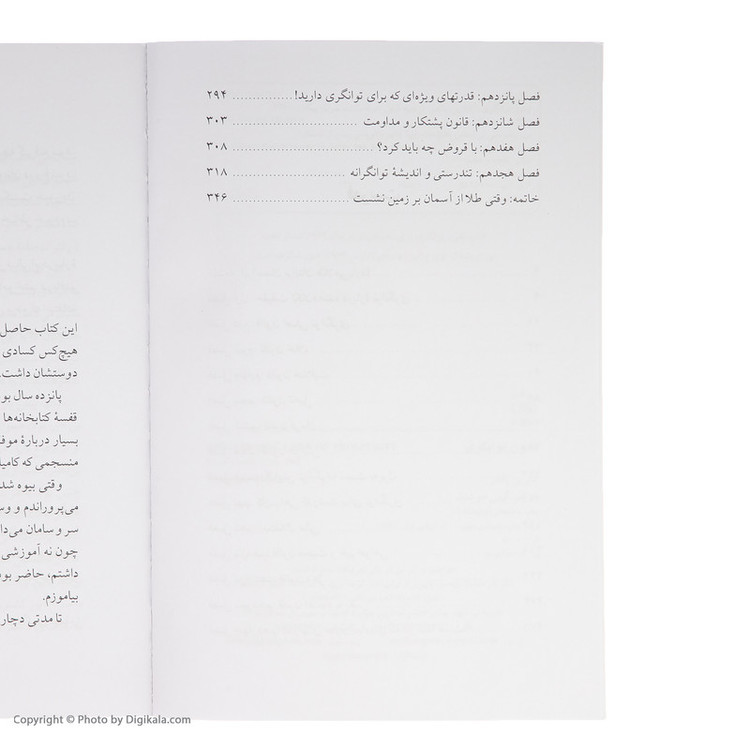 فصل پانزدهم: قدرتهای ویژه‌ای که برای توانگری دارید! .............. ۲۹۴
فصل شانزدهم: قانون پشتکار و مداومت ............................. ۳۰۳
فصل هفدهم: با قروض چه باید کرد؟ ................................. ۳۰۸
فصل هجدهم: تندرستی و اندیشهٔ توانگرانه ........................... ۳۱۸
خاتمه: وقتی طلا از آسمان بر زمین نشست ............................ ۳۴۶
این کتاب حاصل
هیچ‌کس کسادی
دوستشان داشت.
پانزده سال بو
قفسهٔ کتابخانه‌ها
بسیار دربارهٔ موف
منسجمی که کامیا
وقتی بیوه شد
می‌پروراندم و وس
سر و سامان می‌دا
چون نه آموزشی
داشتم، حاضر بود
بیاموزم.
تا مدتی دچار
Copyright © Photo by Digikala.com